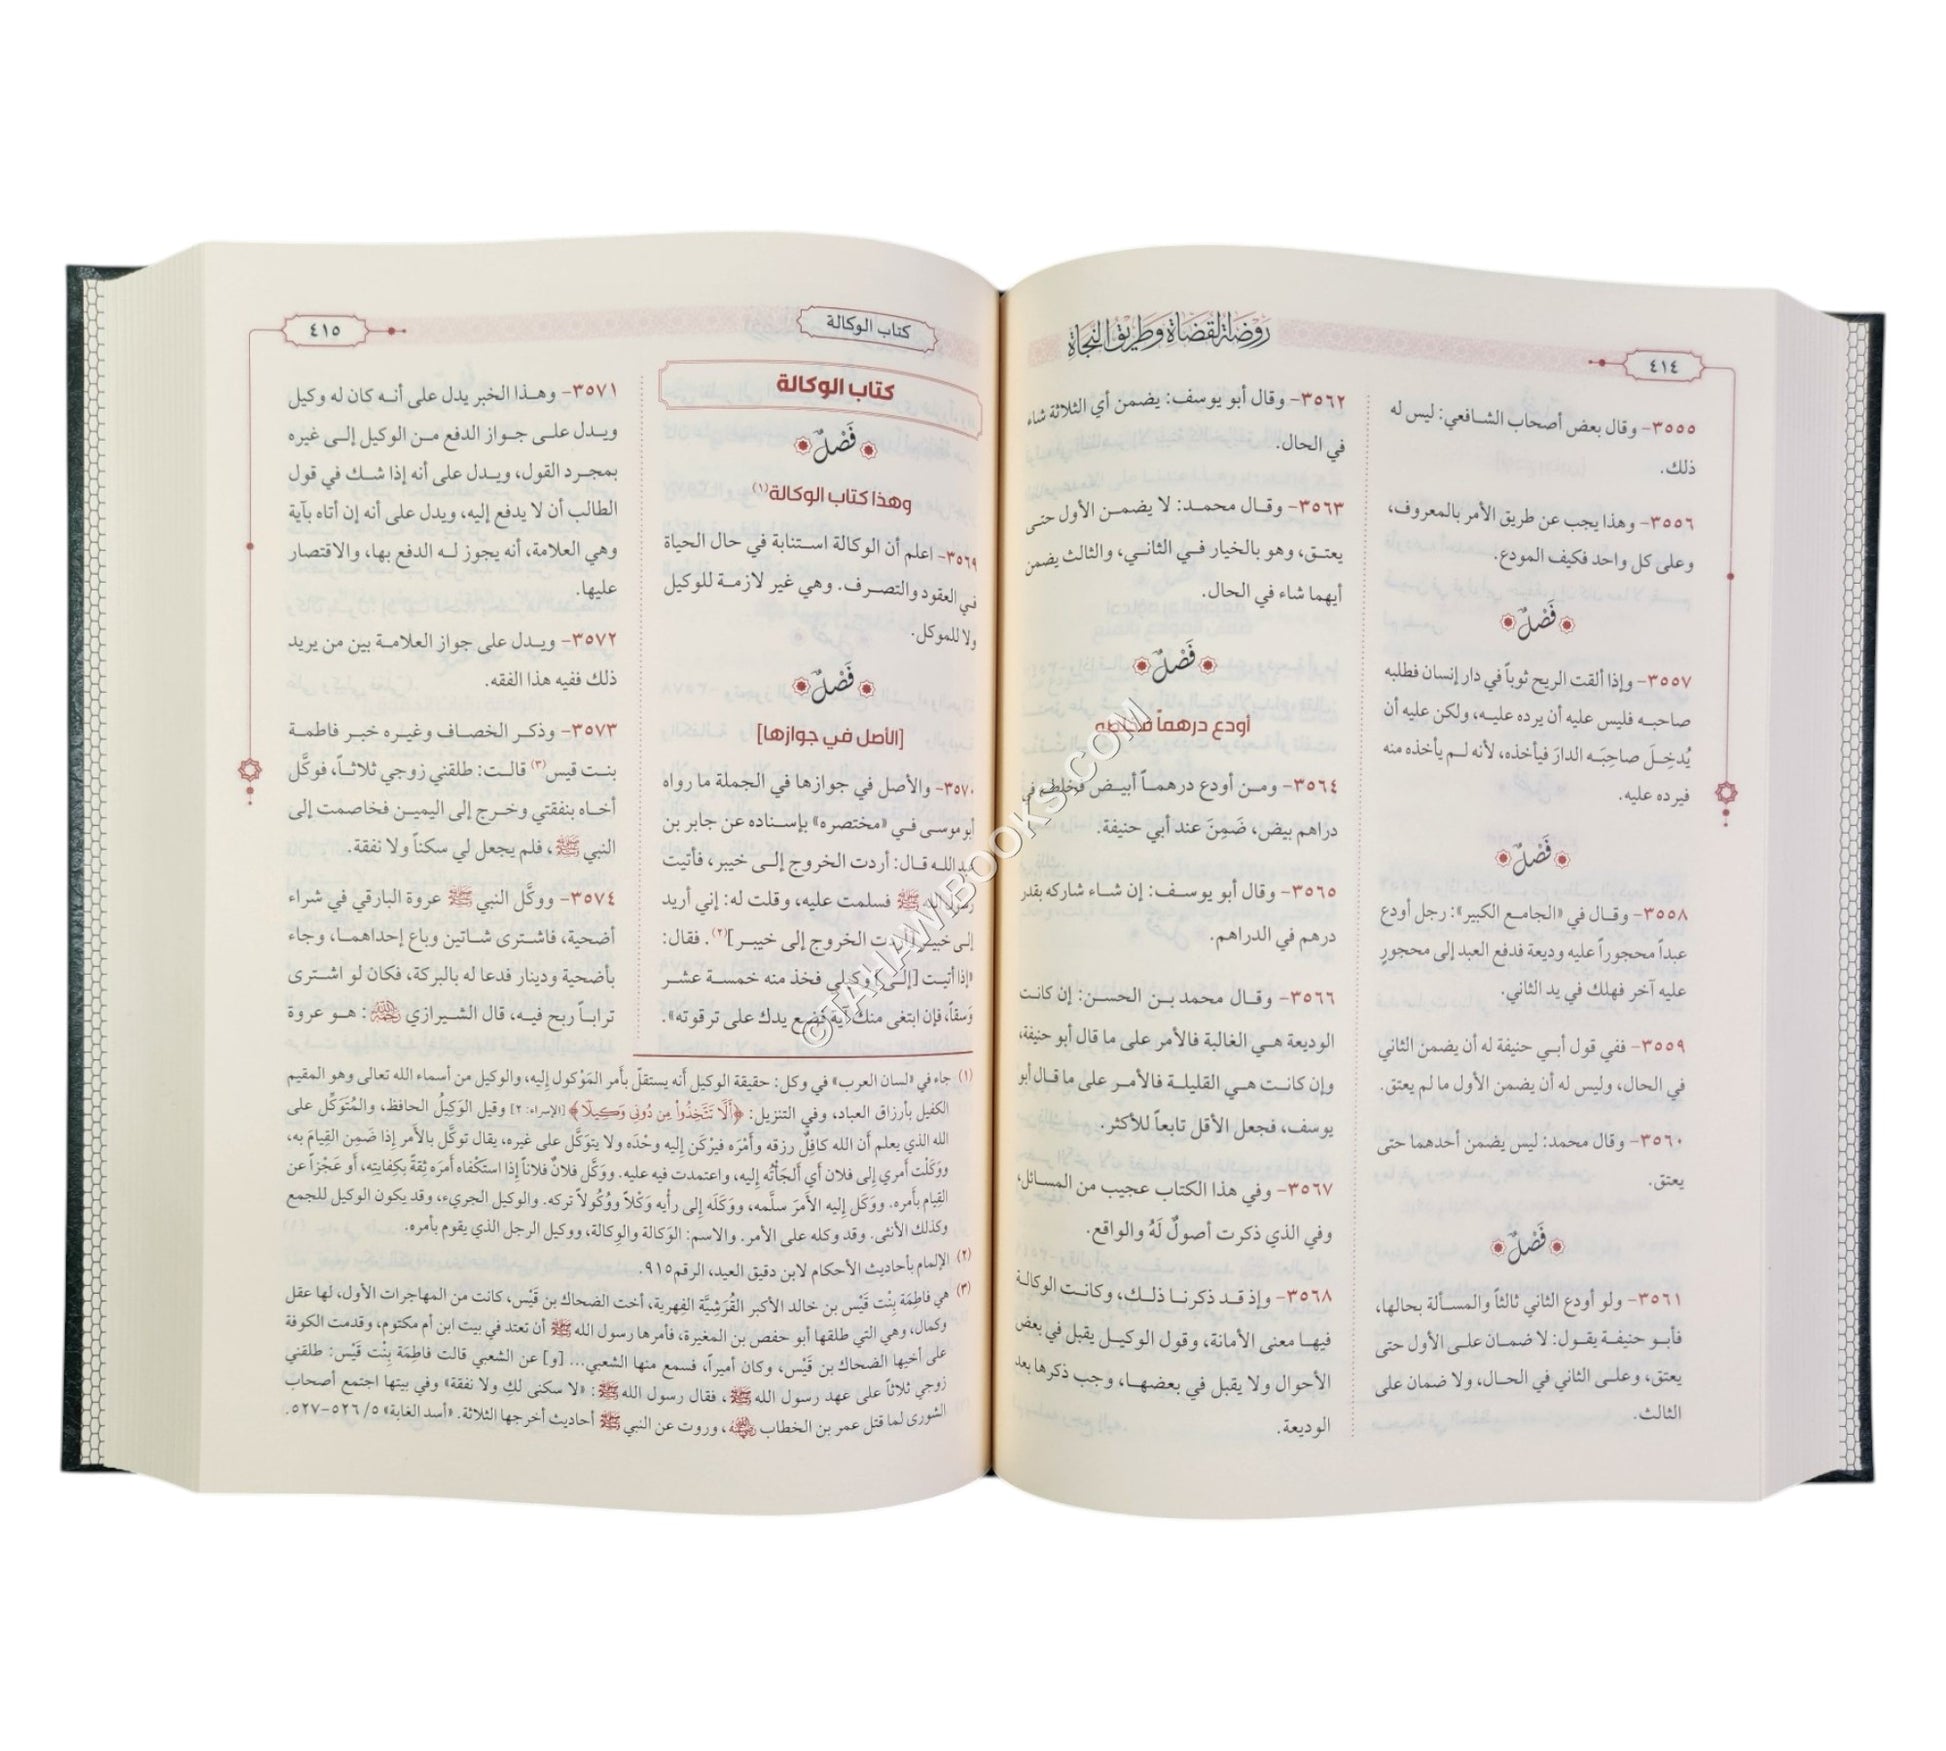 ٤١٤
روضة القضاة وطريق النجاة
٣٥٥٥- وقال بعض أصحاب الشافعي: ليس له
ذلك.
٣٥٥٦- وهذا يجب عن طريق الأمر بالمعروف،
وعلى كل واحد فكيف المودع.
فَصْلٌ
٣٥٥٧- وإذا ألقت الريح ثوباً في دار إنسان فطلبه
صاحبه فليس عليه أن يرده عليه، ولكن عليه أن
يُدخِلَ صاحِبَه الدارَ فيأخذه، لأنه لم يأخذه منه
فيرده عليه.
فَصْلٌ
٣٥٥٨- وقال في «الجامع الكبير»: رجل أودع
عبداً محجوراً عليه وديعة فدفع العبد إلى محجورٍ
عليه آخر فهلك في يد الثاني.
٣٥٥٩- ففي قول أبي حنيفة له أن يضمن الثاني
في الحال، وليس له أن يضمن الأول ما لم يعتق.
٣٥٦٠- وقال محمد: ليس يضمن أحدهما حتى
يعتق.
فَصْلٌ
٣٥٦١- ولو أودع الثاني ثالثاً والمسألة بحالها،
فأبو حنيفة يقول: لا ضمان على الأول حتى
يعتق، وعلى الثاني في الحال، ولا ضمان على
الثالث.
٣٥٦٢- وقال أبو يوسف: يضمن أي الثلاثة شاء
في الحال.
٣٥٦٣- وقال محمد: لا يضمن الأول حتى
يعتق، وهو بالخيار في الثاني، والثالث يضمن
أيهما شاء في الحال.
فَصْلٌ
أودع درهماً فخلطه
٣٥٦٤- ومن أودع درهماً أبيض فخلطه في
دراهم بيض، ضَمِنَ عند أبي حنيفة.
٣٥٦٥- وقال أبو يوسف: إن شاء شاركه بقدر
درهم في الدراهم.
٣٥٦٦- وقال محمد بن الحسن: إن كانت
الوديعة هي الغالبة فالأمر على ما قال أبو حنيفة،
وإن كانت هي القليلة فالأمر على ما قال أبو
يوسف، فجعل الأقل تابعاً للأكثر.
٣٥٦٧- وفي هذا الكتاب عجيب من المسائل،
وفي الذي ذكرت أصولٌ لَهُ والواقع.
٣٥٦٨- وإذ قد ذكرنا ذلك، وكانت الوكالة
فيها معنى الأمانة، وقول الوكيل يقبل في بعض
الأحوال ولا يقبل في بعضها، وجب ذكرها بعد
الوديعة.
كتاب الوكالة
٤١٥
كتاب الوكالة
فَصْلٌ
وهذا كتاب الوكالة(١)
٣٥٦٩- اعلم أن الوكالة استنابة في حال الحياة
في العقود والتصرف. وهي غير لازمة للوكيل
ولا للموكل.
فَصْلٌ
[الأصل في جوازها]
٣٥٧٠- والأصل في جوازها في الجملة ما رواه
أبو موسى في «مختصره» بإسناده عن جابر بن
عبد الله قال: أردت الخروج إلى خيبر، فأتيت
رسول الله ﷺ فسلمت عليه، وقلت له: إني أريد
إلى خيبر [أردت الخروج إلى خيبر](٢). فقال:
«إذا أتيت [إلى] وكيلي فخذ منه خمسة عشر
وَسقاً، فإن ابتغى منك آية فضع يدك على ترقوته».
٣٥٧١- وهذا الخبر يدل على أنه كان له وكيل
ويدل على جواز الدفع من الوكيل إلى غيره
بمجرد القول، ويدل على أنه إذا شك في قول
الطالب أن لا يدفع إليه، ويدل على أنه إن أتاه بآية
وهي العلامة، أنه يجوز له الدفع بها، والاقتصار
عليها.
٣٥٧٢- ويدل على جواز العلامة بين من يريد
ذلك ففيه هذا الفقه.
٣٥٧٣- وذكر الخصاف وغيره خبر فاطمة
بنت قيس(٣) قالت: طلقني زوجي ثلاثاً، فوكَّل
أخاه بنفقتي وخرج إلى اليمين فخاصمت إلى
النبي ﷺ، فلم يجعل لي سكناً ولا نفقة.
٣٥٧٤- ووكَّل النبي ﷺ عروة البارقي في شراء
أضحية، فاشترى شاتين وباع إحداهما، وجاء
بأضحية ودينار فدعا له بالبركة، فكان لو اشترى
تراباً ربح فيه، قال الشيرازي رحمه الله: هو عروة
(١) جاء في «لسان العرب» في وكل: حقيقة الوكيل أنه يستقلّ بأمر المَوْكول إليه، والوكيل من أسماء الله تعالى وهو المقيم
الكفيل بأرزاق العباد، وفي التنزيل: ﴿أَلَّا تَتَّخِذُوا مِن دُونِي وَكِيلًا﴾ [الإسراء: ٢] وقيل الوَكِيلُ الحافظ، والمُتَوَكِّل على
الله الذي يعلم أن الله كافِلٌ رزقه وأمْرَه فيرْكَن إليه وحْدَه ولا يتوَكَّل على غيره، يقال توكَّل بالأمر إذا ضَمِن القِيامَ به،
ووَكَلْت أمري إلى فلان أي ألجَأتُه إليه، واعتمدت فيه عليه. ووَكَّل فلانٌ فلاناً إذا استكْفاه أمرَه ثِقةً بكِفايتِه، أو عَجْزاً عن
القِيام بأمره. ووَكَل إليه الأمرَ سلَّمه، ووَكَلَه إلى رأيه وَكْلاً ووُكُولاً تركه. والوكيل الجريء، وقد يكون الوكيل للجمع
وكذلك الأنثى. وقد وكله على الأمر. والاسم: الوَكالة والوِكالة، ووكيل الرجل الذي يقوم بأمره.
(٢) الإلمام بأحاديث الأحكام لابن دقيق العيد، الرقم٩١٥.
(٣) هي فاطِمَة بِنْت قَيْس بن خالد الأكبر القُرَشِيَّة الفِهرية، أخت الضحاك بن قَيْس، كانت من المهاجرات الأول، لها عقل
وكمال، وهي التي طلقها أبو حفص بن المغيرة، فأمرها رسول الله ﷺ أن تعتد في بيت ابن أم مكتوم، وقدمت الكوفة
على أخيها الضحاك بن قَيْس، وكان أميراً، فسمع منها الشعبي... [و] عن الشعبي قالت فاطِمَة بِنْت قَيْس: طلقني
زوجي ثلاثاً على عهد رسول الله ﷺ، فقال رسول الله ﷺ: «لا سكنى لكِ ولا نفقة» وفي بيتها اجتمع أصحاب
الشورى لما قتل عمر بن الخطاب رضي الله عنه، وروت عن النبي ﷺ أحاديث أخرجها الثلاثة. «أسد الغابة» ٥/ ٥٢٦-٥٢٧.
©TAHAWIBOOKS.COM